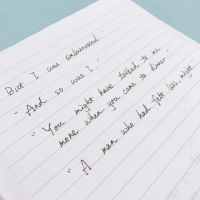 But I was embarrassed."
"And so was I."
"You might have talked to me
more when you came to dinner
"A man who had felt less, might